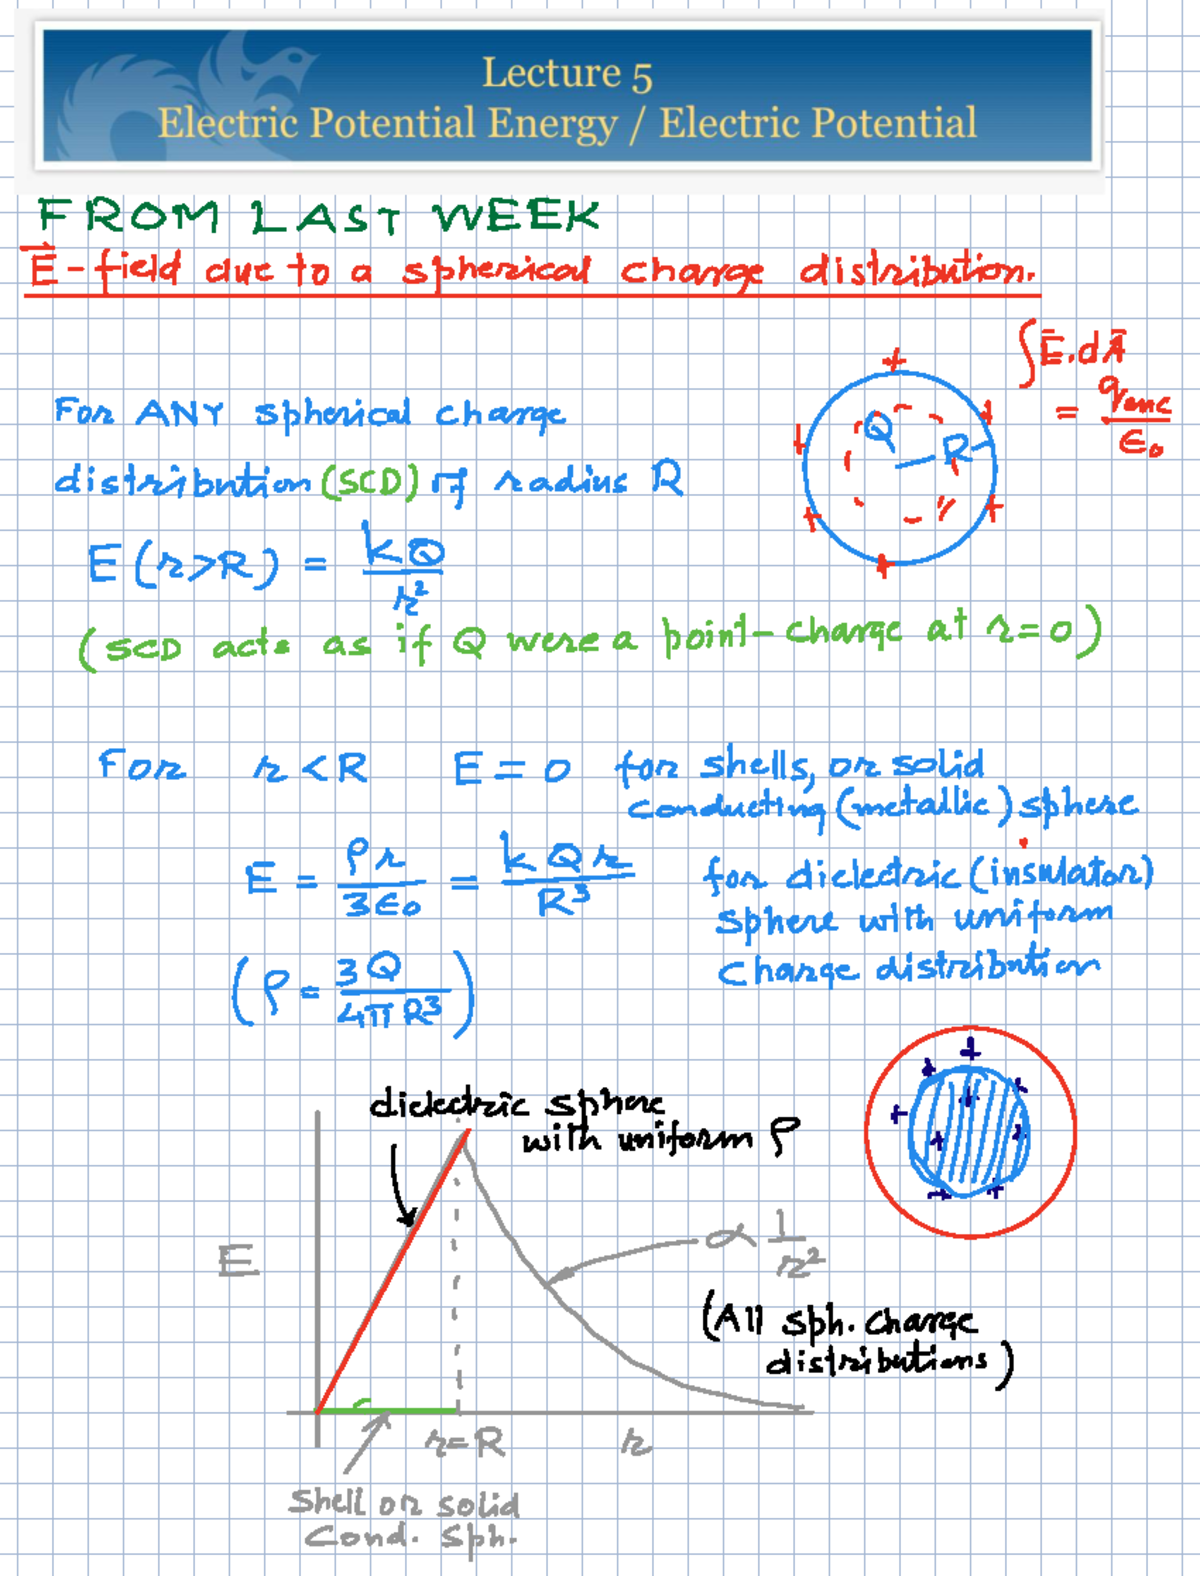 Lecture 5
Electric Potential Energy / Electric Potential
FROM LAST WEEK
E⃗-field due to a spherical charge distribution.
∫E⃗.dA⃗
= qenc/ε₀
+ + + + + + +
Q R
For ANY spherical charge
distribution (SCD) of radius R
E(r>R) = kQ/r²
(SCD acts as if Q were a point-charge at r=0)
For r<R E=0 for shells, or solid
conducting (metallic) sphere
E = ρr/3ε₀ = kQr/R³ for dielectric (insulator)
sphere with uniform
(ρ = 3Q/4πR³) charge distribution
+ + + + + + + + +
dielectric sphere
with uniform ρ
E
∝ 1/r²
(All sph. charge
distributions)
r=R r
Shell or solid
Cond. Sph.